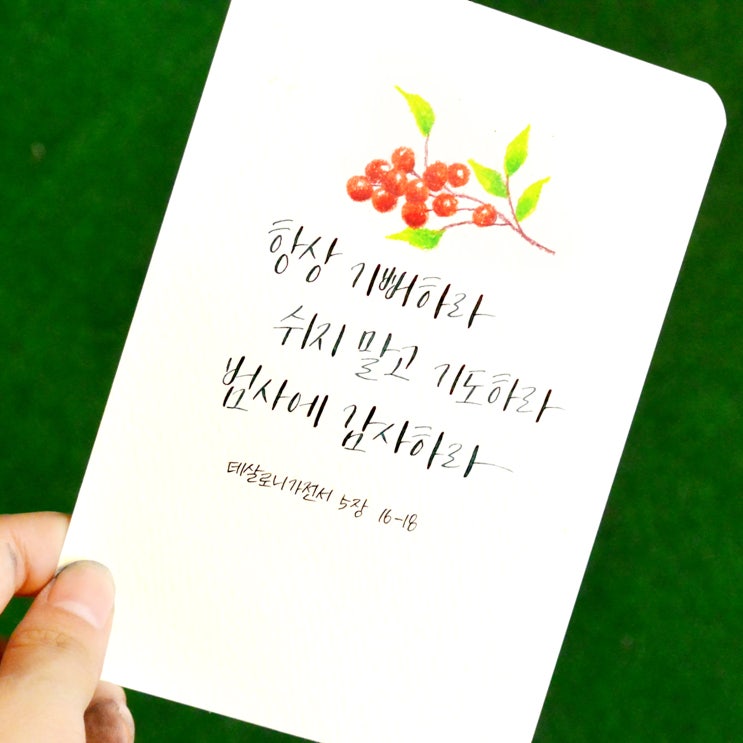 항상 기뻐하라
쉬지 말고 기도하라
범사에 감사하라
데살로니가전서 5장 16-18